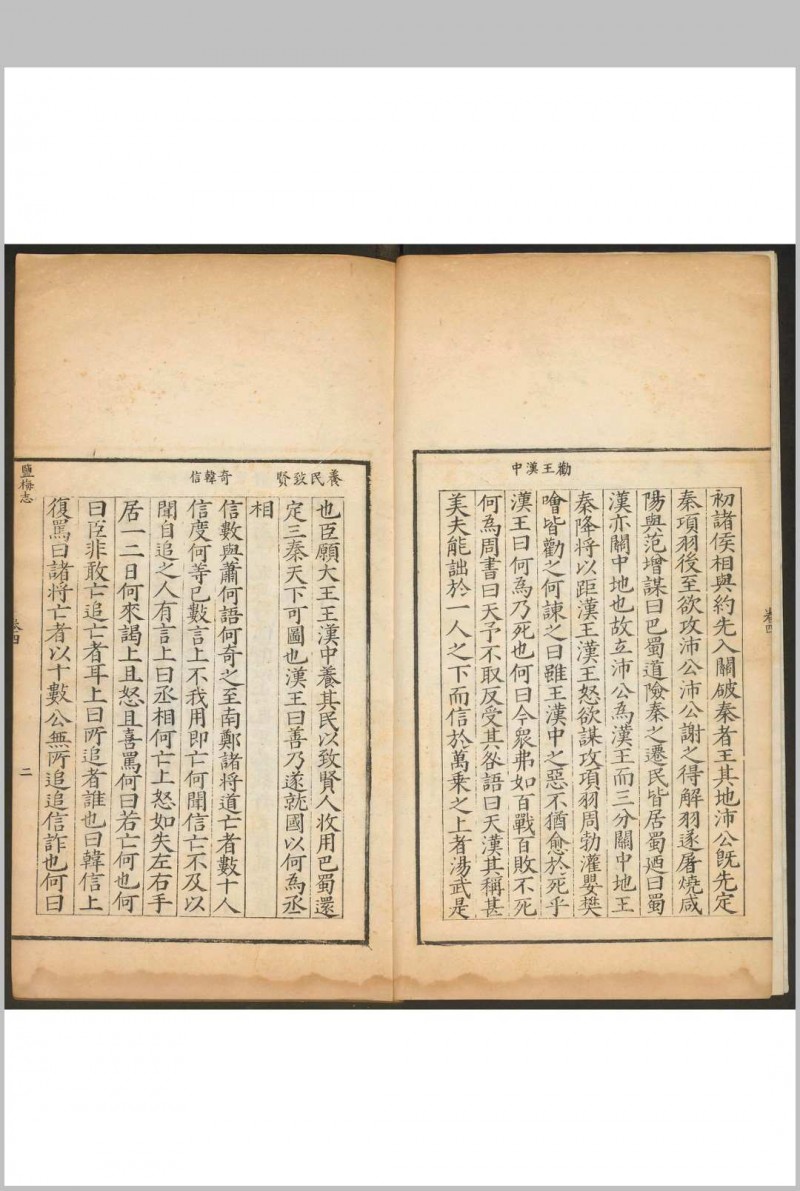 卷四
勸王漢中
初諸侯相與約先入關破秦者王其地沛公旣先定
秦項羽後至欲攻沛公沛公謝之得解羽遂屠燒咸
陽與范增謀曰巴蜀道險秦之遷民皆居蜀廼曰蜀
漢亦關中地也故立沛公爲漢王而三分關中地王
秦降將以距漢王漢王怒欲謀攻項羽周勃灌嬰樊
噲皆勸之何諫之曰雖王漢中之惡不猶愈於死乎
漢王曰何爲乃死也何曰今衆弗如百戰百敗不死
何爲周書曰天予不取反受其咎語曰天漢其稱甚
美夫能詘於一人之下而信於萬乗之上者湯武是
養民致賢
奇韓信
也臣願大王王漢中養其民以致賢人收用巴蜀還
定三秦天下可圖也漢王曰善乃遂就國以何爲丞
相
信數與蕭何語何奇之至南鄭諸將道亡者數十人
信度何等已數言上不我用即亡何聞信亡不及以
聞自追之人有言上曰丞相何亡上怒如失左右手
居一二日何來謁上且怒且喜罵何曰若亡何也何
曰臣非敢亡追亡者耳上曰所追者誰也曰韓信上
復罵曰諸將亡者以十數公無所追追信詐也何曰
鹽梅志
卷四
二